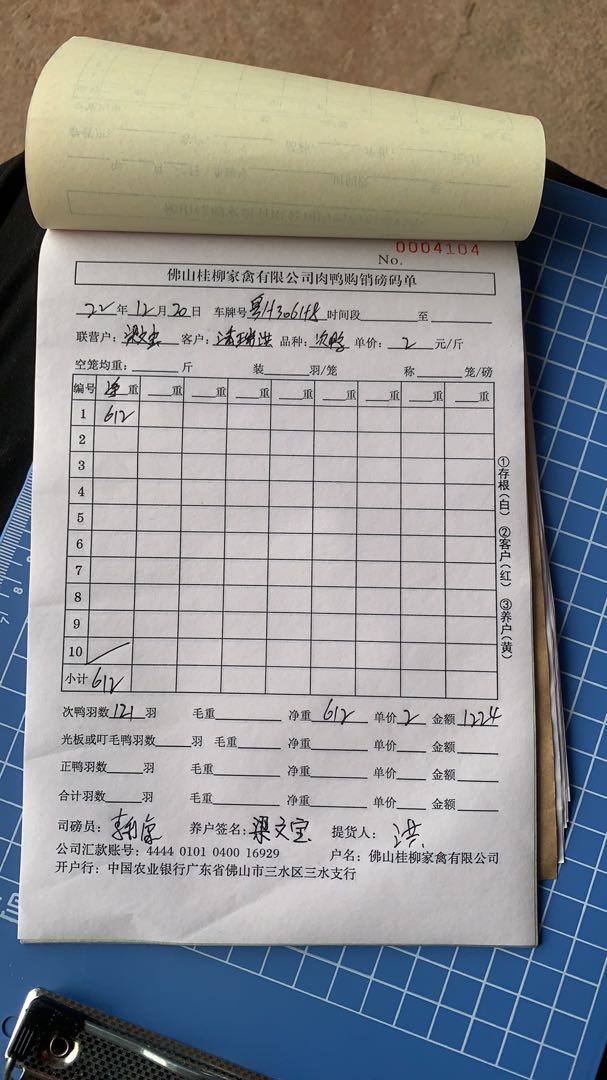 0004104
No.
佛山桂柳家禽有限公司肉鸭购销磅码单
22年12月20日 车牌号 时间段 至
联营户:梁文宝 客户: 品种:次鸭 单价:2元/斤
空笼均重: 斤 装 羽/笼 称 笼/磅
编号 净重 重 重 重 重 重 重 重
1 612
2
3
4
5
6
7
8
9
10
小计 612
①存根(白) ②客户(红) ③养户(黄)
次鸭羽数121羽 毛重 净重612 单价2 金额1224
光板或叮毛鸭羽数 羽 毛重 净重 单价 金额
正鸭羽数 羽 毛重 净重 单价 金额
合计羽数 羽 毛重 净重 单价 金额
司磅员: 养户签名:梁文宝 提货人:洪
公司汇款账号:4444 0101 0400 16929 户名:佛山桂柳家禽有限公司
开户行:中国农业银行广东省佛山市三水区三水支行